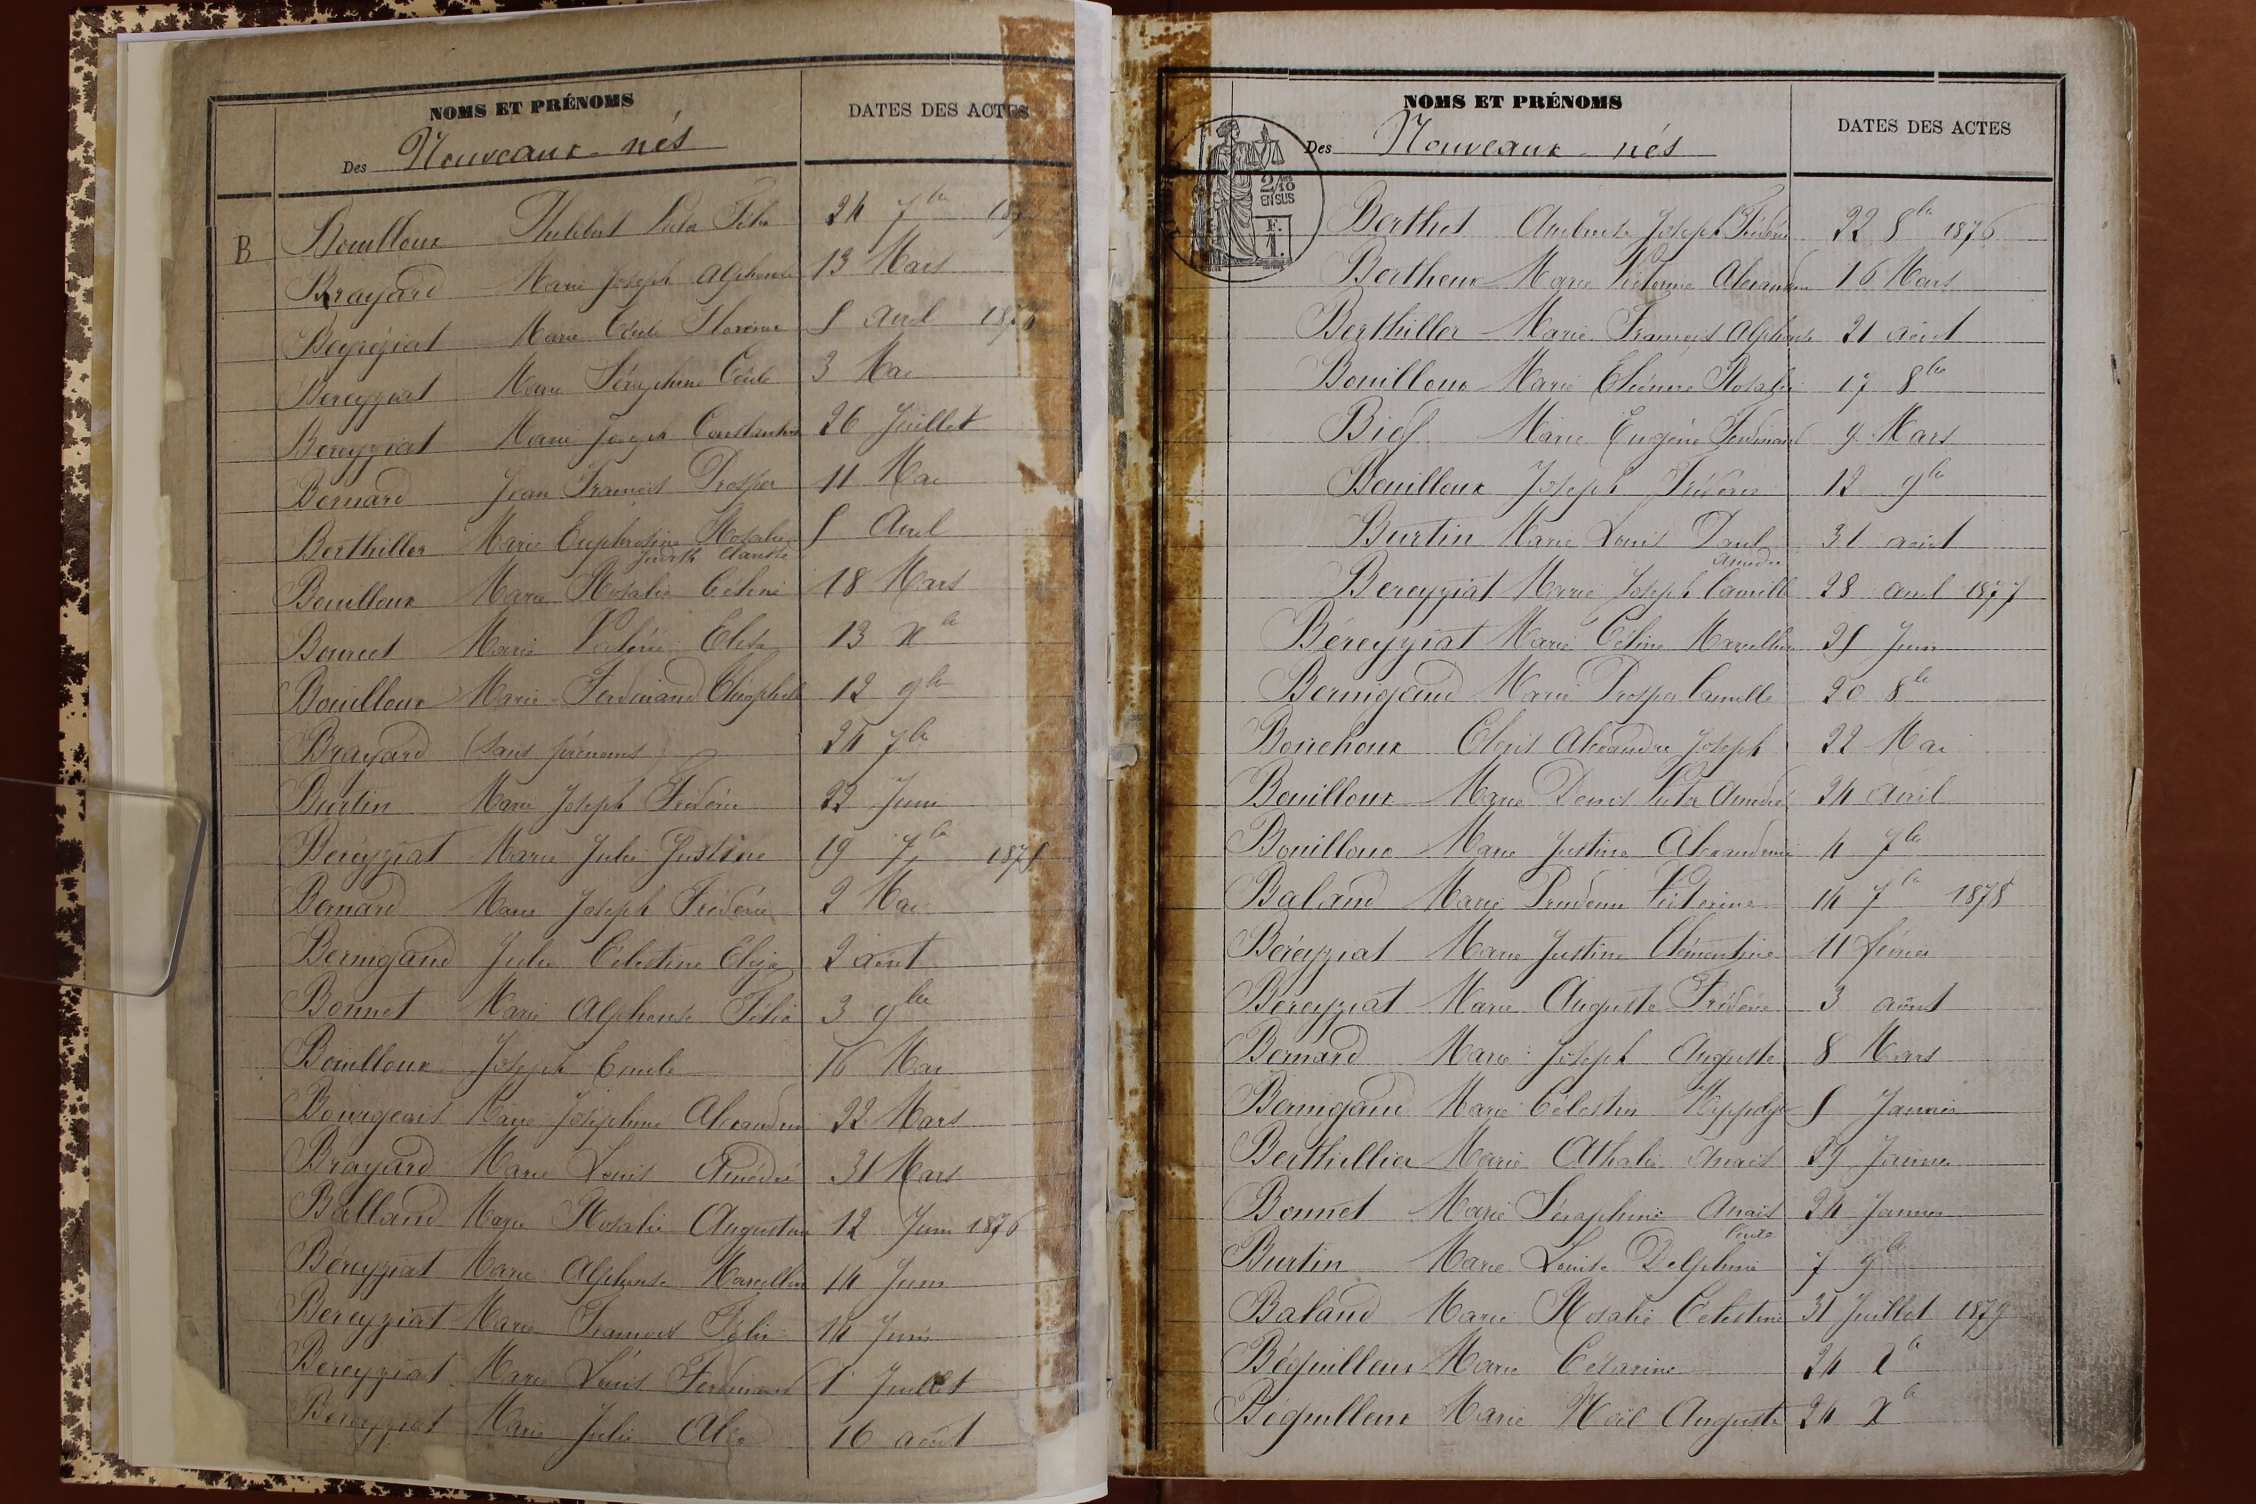 NOMS ET PRÉNOMS
Des Nouveaux-nés
DATES DES ACTES
B
Bouilloux Philibert Victor Félix 24 7bre
Brayard Marie Joseph Alphonse 13 Mars
Beyreziat Marie Cécile Florine 5 Avril
Bereyziat Marie Séraphine Cécile 3 Mai
Bereyziat Marie Joseph Constantin 26 Juillet
Bernard Jean François Prosper 11 Mai
Berthiller Marie Euphrosine Rosalie 5 Avril
Bouilloux Marie Rosalie Céline 18 Mars
Bourcet Marie Valérie Elisa 13 Xbre
Bouilloux Marie Ferdinand Théophile 12 9bre
Brayard (Sans prénoms) 24 7bre
Burtin Marie Joseph Frédéric 22 Juin
Bereyziat Marie Julie Justine 19 7bre 1875
Bernard Marie Joseph Frédéric 2 Mai
Bernigaud Julie Célestine Eliza 2 août
Bonnet Marie Alphonse Félix 3 9bre
Bouilloux Joseph Emile 16 Mai
Bourgeois Marie Joséphine Alexandrine 22 Mars
Brayard Marie Louis Amédé 31 Mars
Balland Marie Rosalie Augustine 12 Juin 1876
Béreyziat Marie Alphonse Marcellin 14 Juin
Bereyziat Marie François Félix 14 Juin
Bereyziat Marie Louis Ferdinand 1er Juillet
Bereyziat Marie Julie Alice 16 août
NOMS ET PRÉNOMS
Des Nouveaux-nés
DATES DES ACTES
2/10
EN SUS
F.
1.
Berthet Joseph Frédéric 22 8bre 1876
Bertheux Marie Victorine Alexandrine 16 Mars
Berthiller Marie François Alphonse 21 août
Bouilloux Marie Etienne Rosalie 17 8bre
Marie Eugène Ferdinand 9 Mars
Bouilloux Joseph Frédéric 12 9bre
Burtin Marie Louis Paul 31 août
Amédée
Bereyziat Marie Joseph Camille 28 avril 1877
Béreyziat Marie Céline Marcelline 25 Juin
Bernigaud Marie Prosper Camille 20 8bre
Bouchoux Clovis Alexandre Joseph 22 Mai
Bouilloux Marie Denis Victor Amédée 24 avril
Bouilloux Marie Justine Alexandrine 4 7bre
Baland Marie Prudence Victorine 14 7bre 1878
Béréyziat Marie Justine Clémentine 11 février
Bereyziat Marie Auguste Frédéric 3 août
Bernard Marie Joseph Auguste 8 Mars
Bernigaud Marie Célestin Hyppolyte 5 Janvier
Berthillier Marie Athalie Anaïs 29 Janvier
Bonnet Marie Séraphine Anaïs 24 Janvier
Burtin Marie Louise Delphine 7 9bre
Baland Marie Rosalie Célestine 31 Juillet 1879
Béguilleux Marie Césarine 24 Xbre
Béguilleux Marie Noël Auguste 24 Xbre